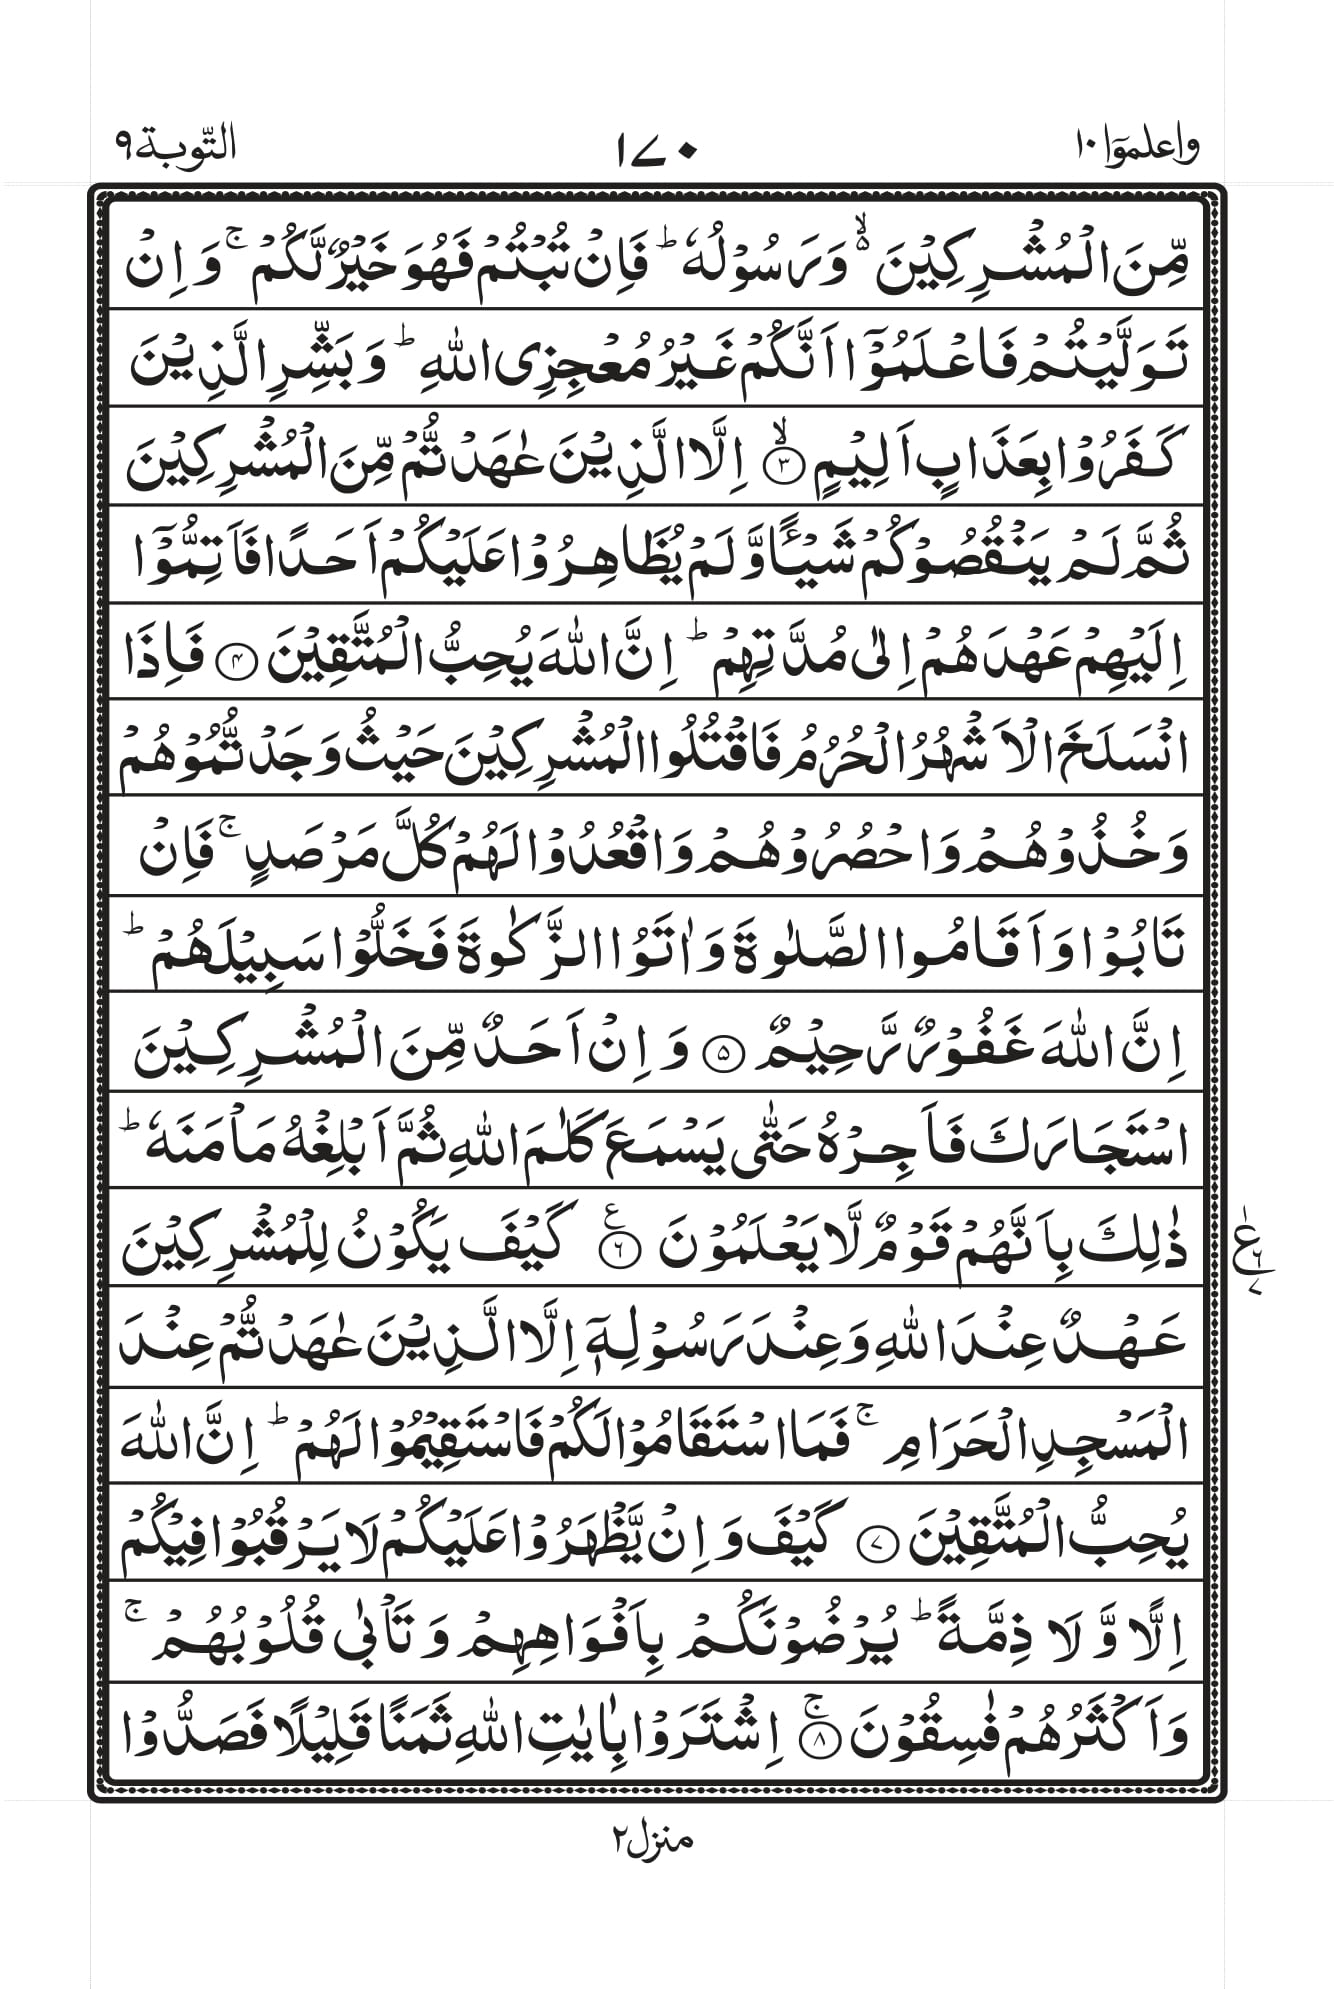 واعلموٓا ١٠
١٧٠
التّوبة ٩
مِّنَ الْمُشْرِكِيْنَ ۙ۬ وَرَسُوْلُهٗ ؕ فَاِنْ تُبْتُمْ فَهُوَ خَيْرٌ لَّكُمْ ۚ وَاِنْ
تَوَلَّيْتُمْ فَاعْلَمُوْۤا اَنَّكُمْ غَيْرُ مُعْجِزِى اللّٰهِ ؕ وَبَشِّرِ الَّذِيْنَ
كَفَرُوْا بِعَذَابٍ اَلِيْمٍ ۙ﴿٣﴾ اِلَّا الَّذِيْنَ عٰهَدْتُّمْ مِّنَ الْمُشْرِكِيْنَ
ثُمَّ لَمْ يَنْقُصُوْكُمْ شَيْـًٔا وَّلَمْ يُظَاهِرُوْا عَلَيْكُمْ اَحَدًا فَاَتِمُّوْۤا
اِلَيْهِمْ عَهْدَهُمْ اِلٰى مُدَّتِهِمْ ؕ اِنَّ اللّٰهَ يُحِبُّ الْمُتَّقِيْنَ ﴿۴﴾ فَاِذَا
انْسَلَخَ الْاَشْهُرُ الْحُرُمُ فَاقْتُلُوا الْمُشْرِكِيْنَ حَيْثُ وَجَدْتُّمُوْهُمْ
وَخُذُوْهُمْ وَاحْصُرُوْهُمْ وَاقْعُدُوْا لَهُمْ كُلَّ مَرْصَدٍ ۚ فَاِنْ
تَابُوْا وَاَقَامُوا الصَّلٰوةَ وَاٰتَوُا الزَّكٰوةَ فَخَلُّوْا سَبِيْلَهُمْ ؕ
اِنَّ اللّٰهَ غَفُوْرٌ رَّحِيْمٌ ﴿۵﴾ وَاِنْ اَحَدٌ مِّنَ الْمُشْرِكِيْنَ
اسْتَجَارَكَ فَاَجِرْهُ حَتّٰى يَسْمَعَ كَلٰمَ اللّٰهِ ثُمَّ اَبْلِغْهُ مَاْمَنَهٗ ؕ
ذٰلِكَ بِاَنَّهُمْ قَوْمٌ لَّا يَعْلَمُوْنَ ﴿۶﴾ ع كَيْفَ يَكُوْنُ لِلْمُشْرِكِيْنَ
ع ۱ ۶ ۷
عَهْدٌ عِنْدَ اللّٰهِ وَعِنْدَ رَسُوْلِهٖۤ اِلَّا الَّذِيْنَ عٰهَدْتُّمْ عِنْدَ
الْمَسْجِدِ الْحَرَامِ ۚ فَمَا اسْتَقَامُوْا لَكُمْ فَاسْتَقِيْمُوْا لَهُمْ ؕ اِنَّ اللّٰهَ
يُحِبُّ الْمُتَّقِيْنَ ﴿۷﴾ كَيْفَ وَاِنْ يَّظْهَرُوْا عَلَيْكُمْ لَا يَرْقُبُوْا فِيْكُمْ
اِلًّا وَّلَا ذِمَّةً ؕ يُرْضُوْنَكُمْ بِاَفْوَاهِهِمْ وَتَاْبٰى قُلُوْبُهُمْ ۚ
وَاَكْثَرُهُمْ فٰسِقُوْنَ ۚ﴿۸﴾ اِشْتَرَوْا بِاٰيٰتِ اللّٰهِ ثَمَنًا قَلِيْلًا فَصَدُّوْا
منزل ٢